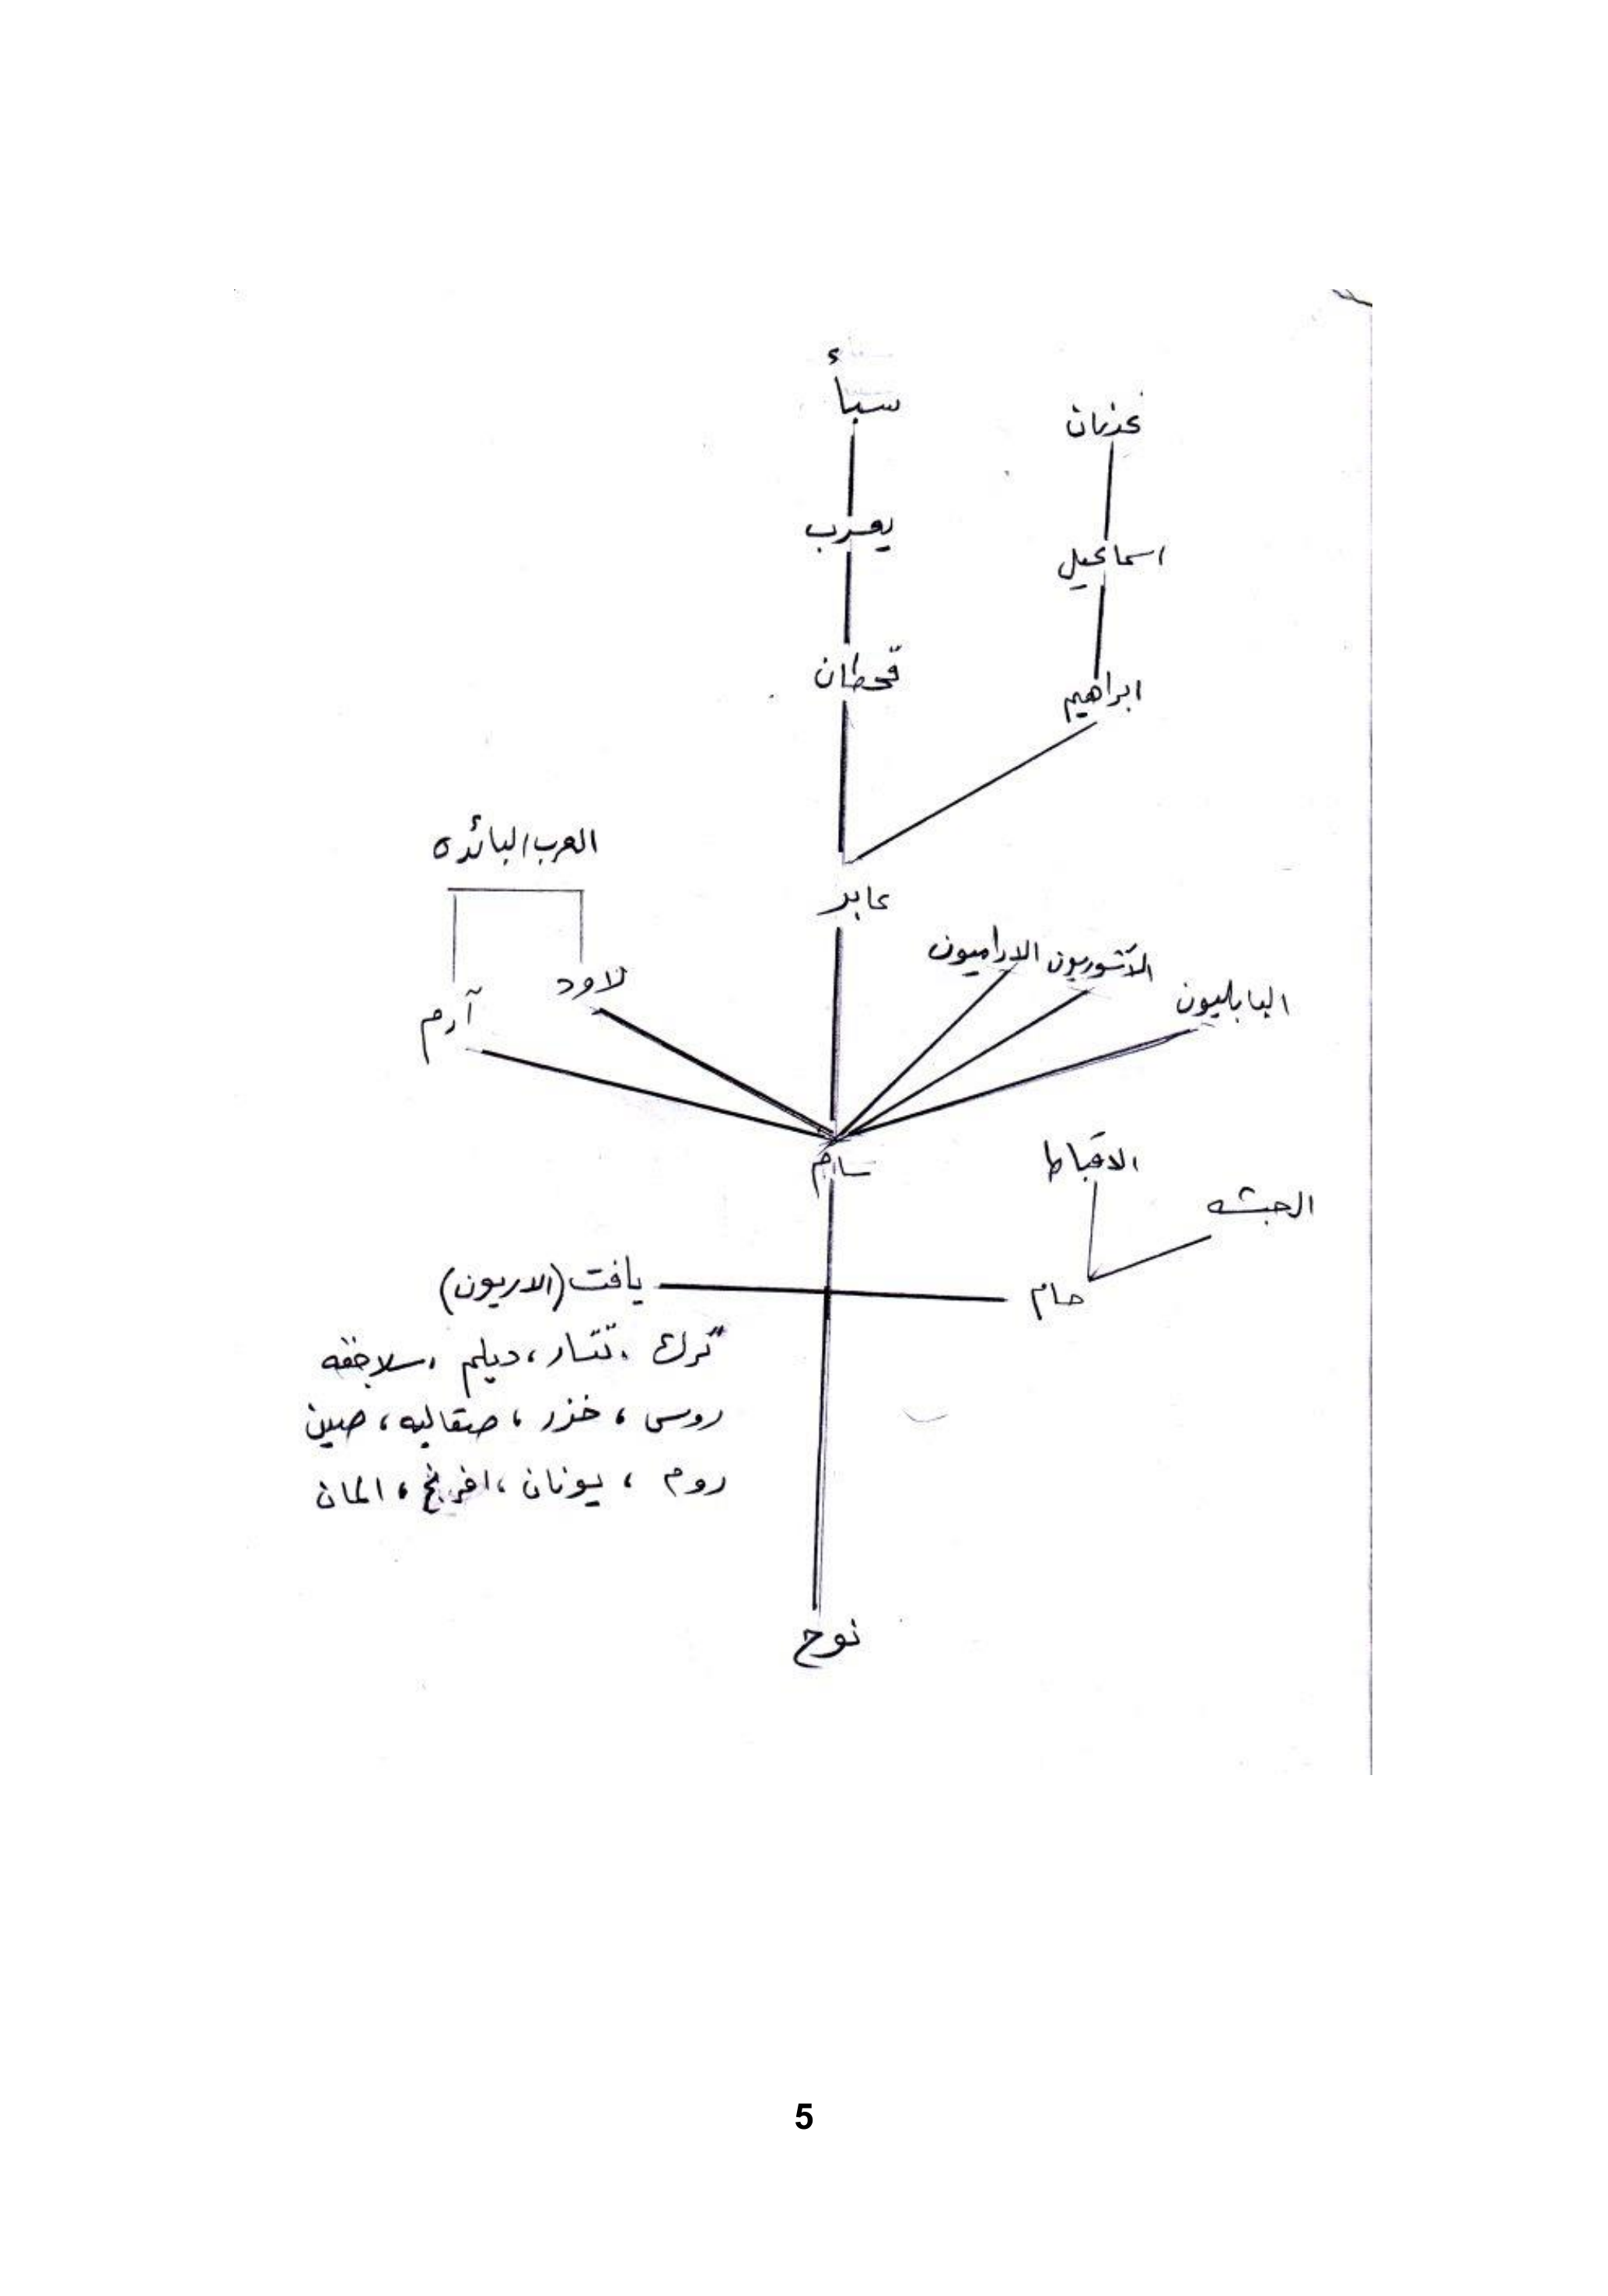 سبأ
عدنان
يعرب
اسماعيل
قحطان
ابراهيم
العرب البائده
عابر
الاراميون
الآشوريون
البابليون
لاود
آرم
سام
الاقباط
الحبشه
يافت (الاريون)
حام
ترك ، تتار ، ديلم ، سلاجقه
روس ، خزر ، صقالبه ، صين
روم ، يونان ، افرنج ، المان
نوح
5